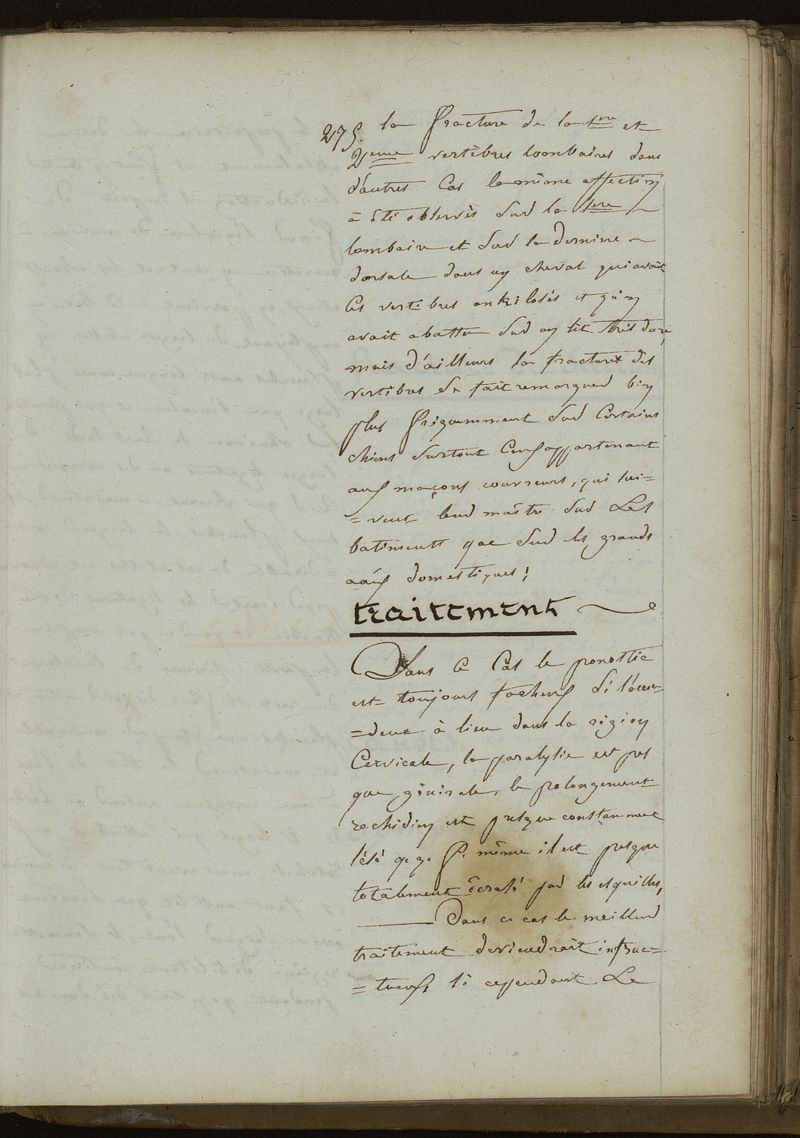 275. la fracture de la 1ere et
2eme vertèbres loombaires dans
d'autres Cas la même affection
à été observés sur la 1ere
lombaire et sur la derniere
dorsale dans un cheval qui avait
les vertebres ankilosés et qu'on
avait abattu sur un lit très dur,
mais d'ailleurs la fracture des
vertebres se fait remarquer bien
plus fréquemment sur Certains
chiens surtout Ceux appartenant
aux maçons couvreurs, qui sui-
=vent leur maître sur Les
batiments que sur les grands
aaux domestiques!
traitement
Dans ce Cas le pronostic
est toujours facheux si l'acci-
=dent à lieu dans la région
Cervicale, la paralysie est pres
que générale, le prolongement
rachidien est presque constamment
lésé qq f. même il est presque
totalement écrasé par les esquilles,
Dans ce cas le meilleur
traitement deviendrait infruc-
=tueux, si cependant Le